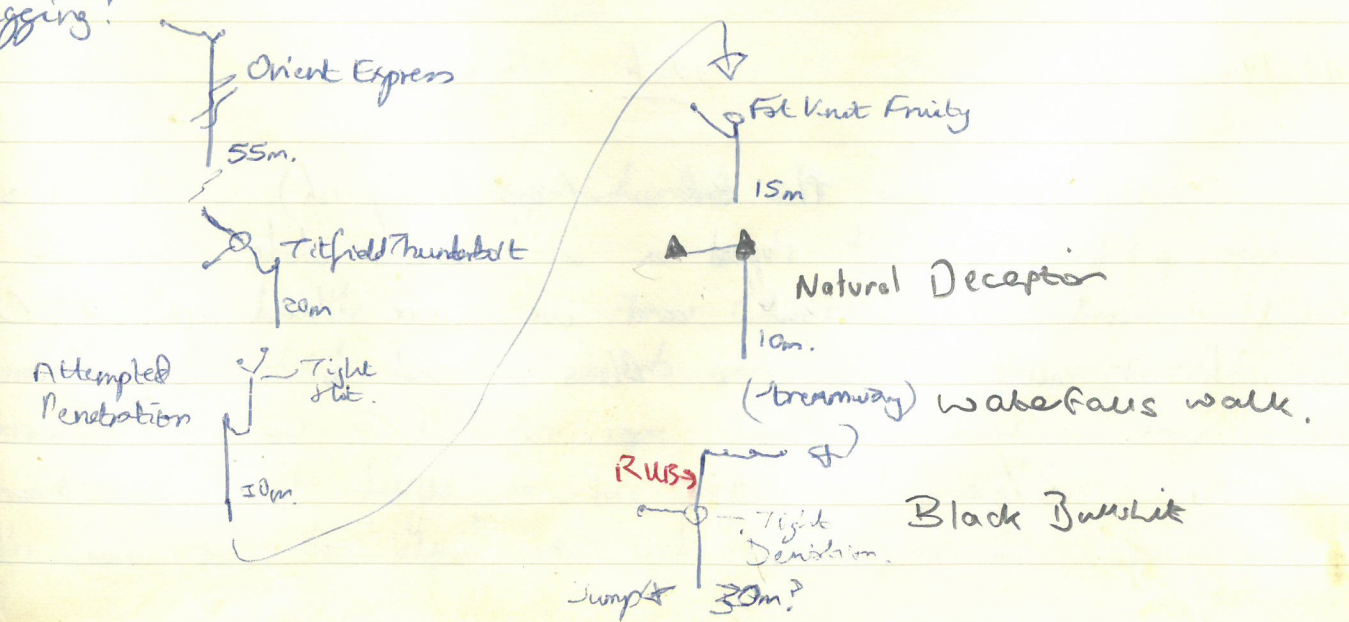 gging!
Orient Express
55m.
Titfield Thunderbolt
20m
Attempted
Penetration
Tight
10m.
Fat Knit Fruity
15m
Natural Deception
10m.
(streamway) waterfalls walk.
RUB
Black Bullshit
Tight
Deviation.
30m?